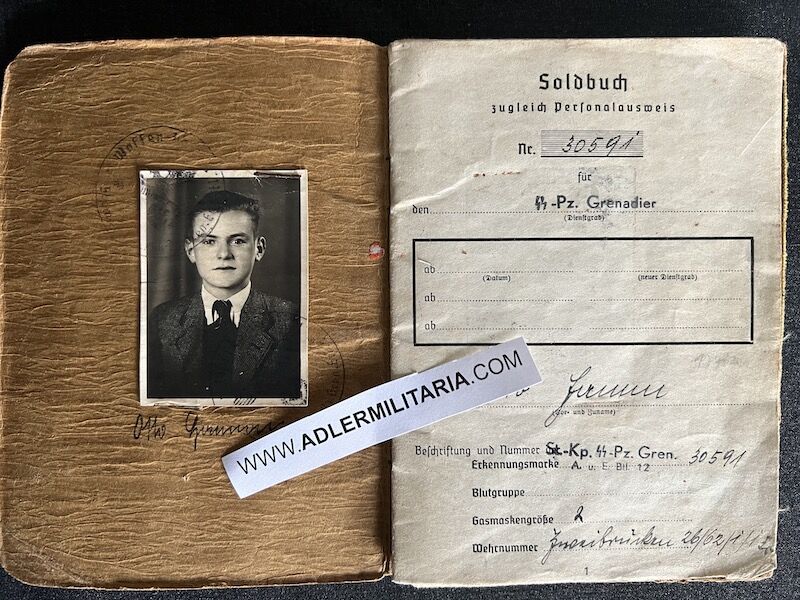 Waffen-
Otto
WWW.ADLERMILITARIA.COM
Soldbuch
zugleich Personalausweis
Nr. 30591
für
den ᛋᛋ-Pz. Grenadier
(Dienstgrad)
ab
(Datum) (neuer Dienstgrad)
ab
ab
(Vor- und Zuname)
Beschriftung und Nummer St.-Kp. ᛋᛋ-Pz. Gren.
Erkennungsmarke A. u. E. Btl. 12 30591
Blutgruppe
Gasmaskengröße 2
Wehrnummer Zweibrücken 26/62/1/
1